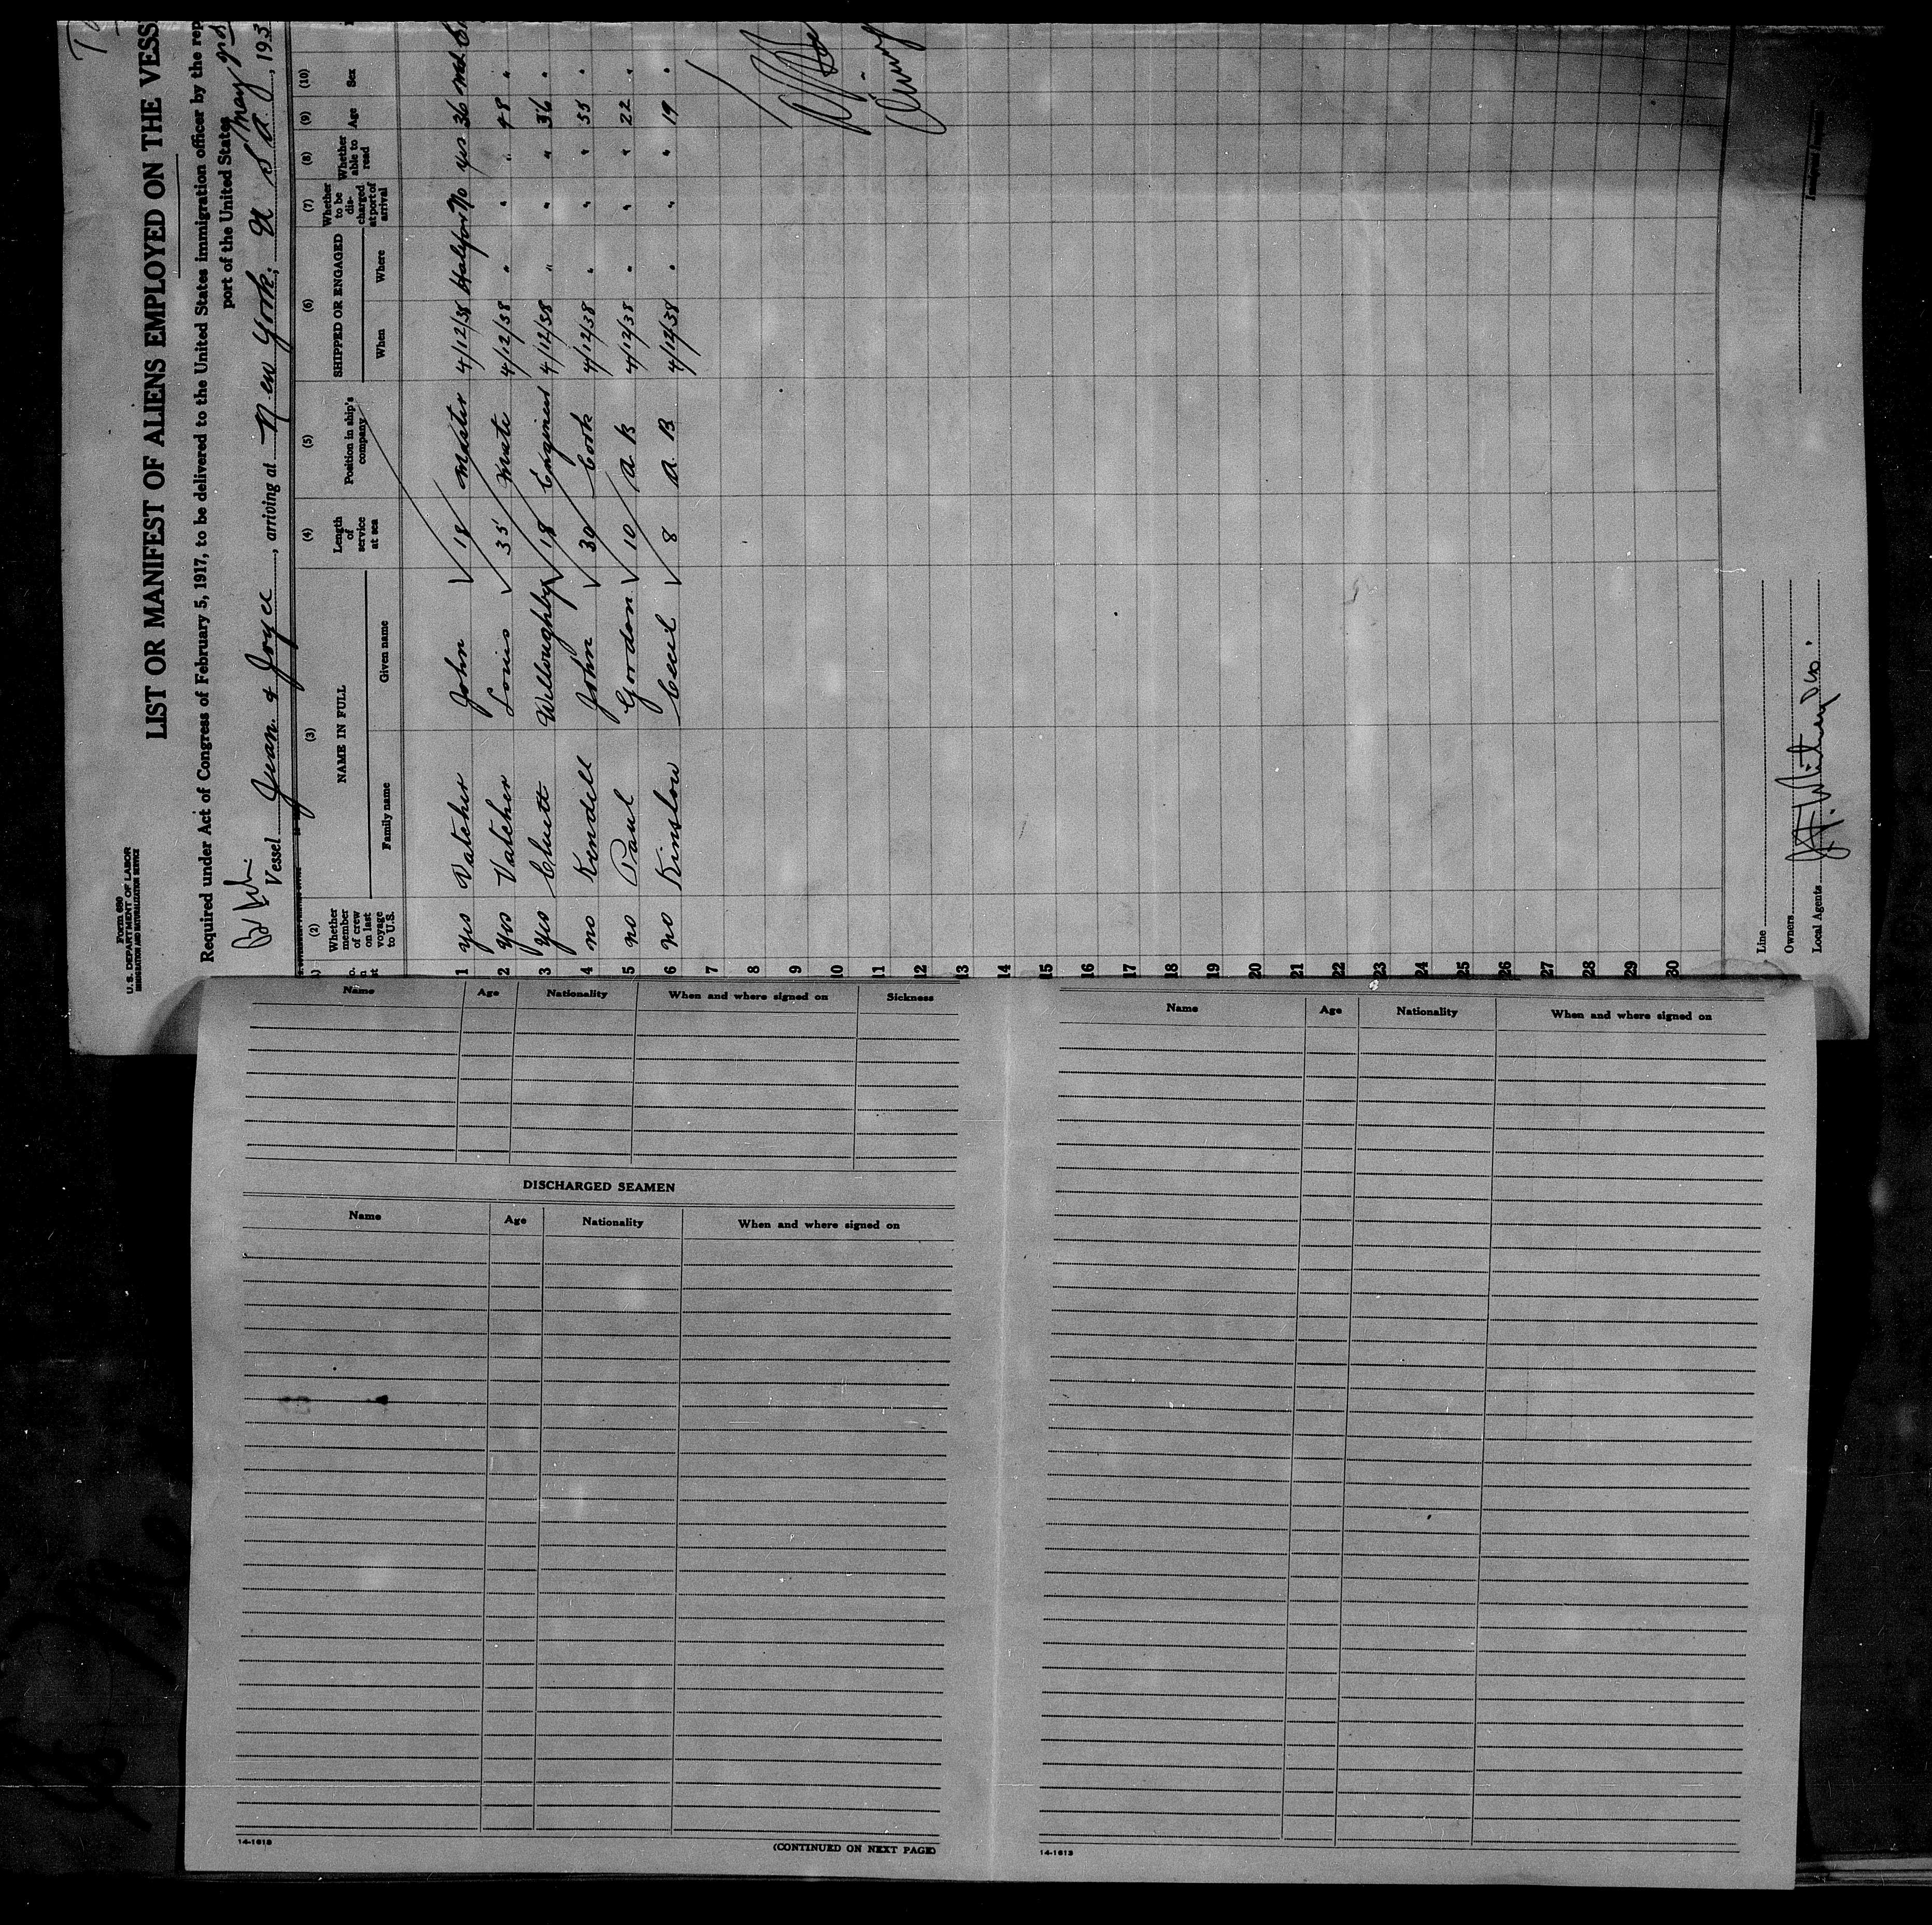 Form 680
U. S. DEPARTMENT OF LABOR
IMMIGRATION AND NATURALIZATION SERVICE
LIST OR MANIFEST OF ALIENS EMPLOYED ON THE VESS
Required under Act of Congress of February 5, 1917, to be delivered to the United States immigration officer by the rep
port of the United States
Vessel Jean & Joyce, arriving at New York, U S A, May 193
(2) (3) (4) (5) (6) (7) (8) (9) (10)
Whether member of crew on last voyage to U.S. NAME IN FULL Length of service at sea Position in ship's company SHIPPED OR ENGAGED Whether to be discharged at port of arrival Whether able to read Age Sex
Family name Given name When Where
1 yes Vatcher John 18 Master 4/12/38 Halifax No yes 36
2 yes Vatcher Louis 35 Mate 4/12/38 " " " 48 "
3 yes Cluett Willoughby 18 Engineer 4/12/38 " " " 36 "
4 no Kendell John 30 Cook 4/12/38 " " " 55 "
5 no Paul Gordon 10 A. B 4/12/38 " " " 22 "
6 no Kinslow Cecil 8 A. B 4/12/38 " " " 19 "
7
8
9
10
11
12
13
14
15
16
17
18
19
20
21
22
23
24
25
26
27
28
29
30
Line
Owners
Local Agents
Name Age Nationality When and where signed on Sickness
DISCHARGED SEAMEN
Name Age Nationality When and where signed on
14-1613
(CONTINUED ON NEXT PAGE)
Name Age Nationality When and where signed on
14-1613